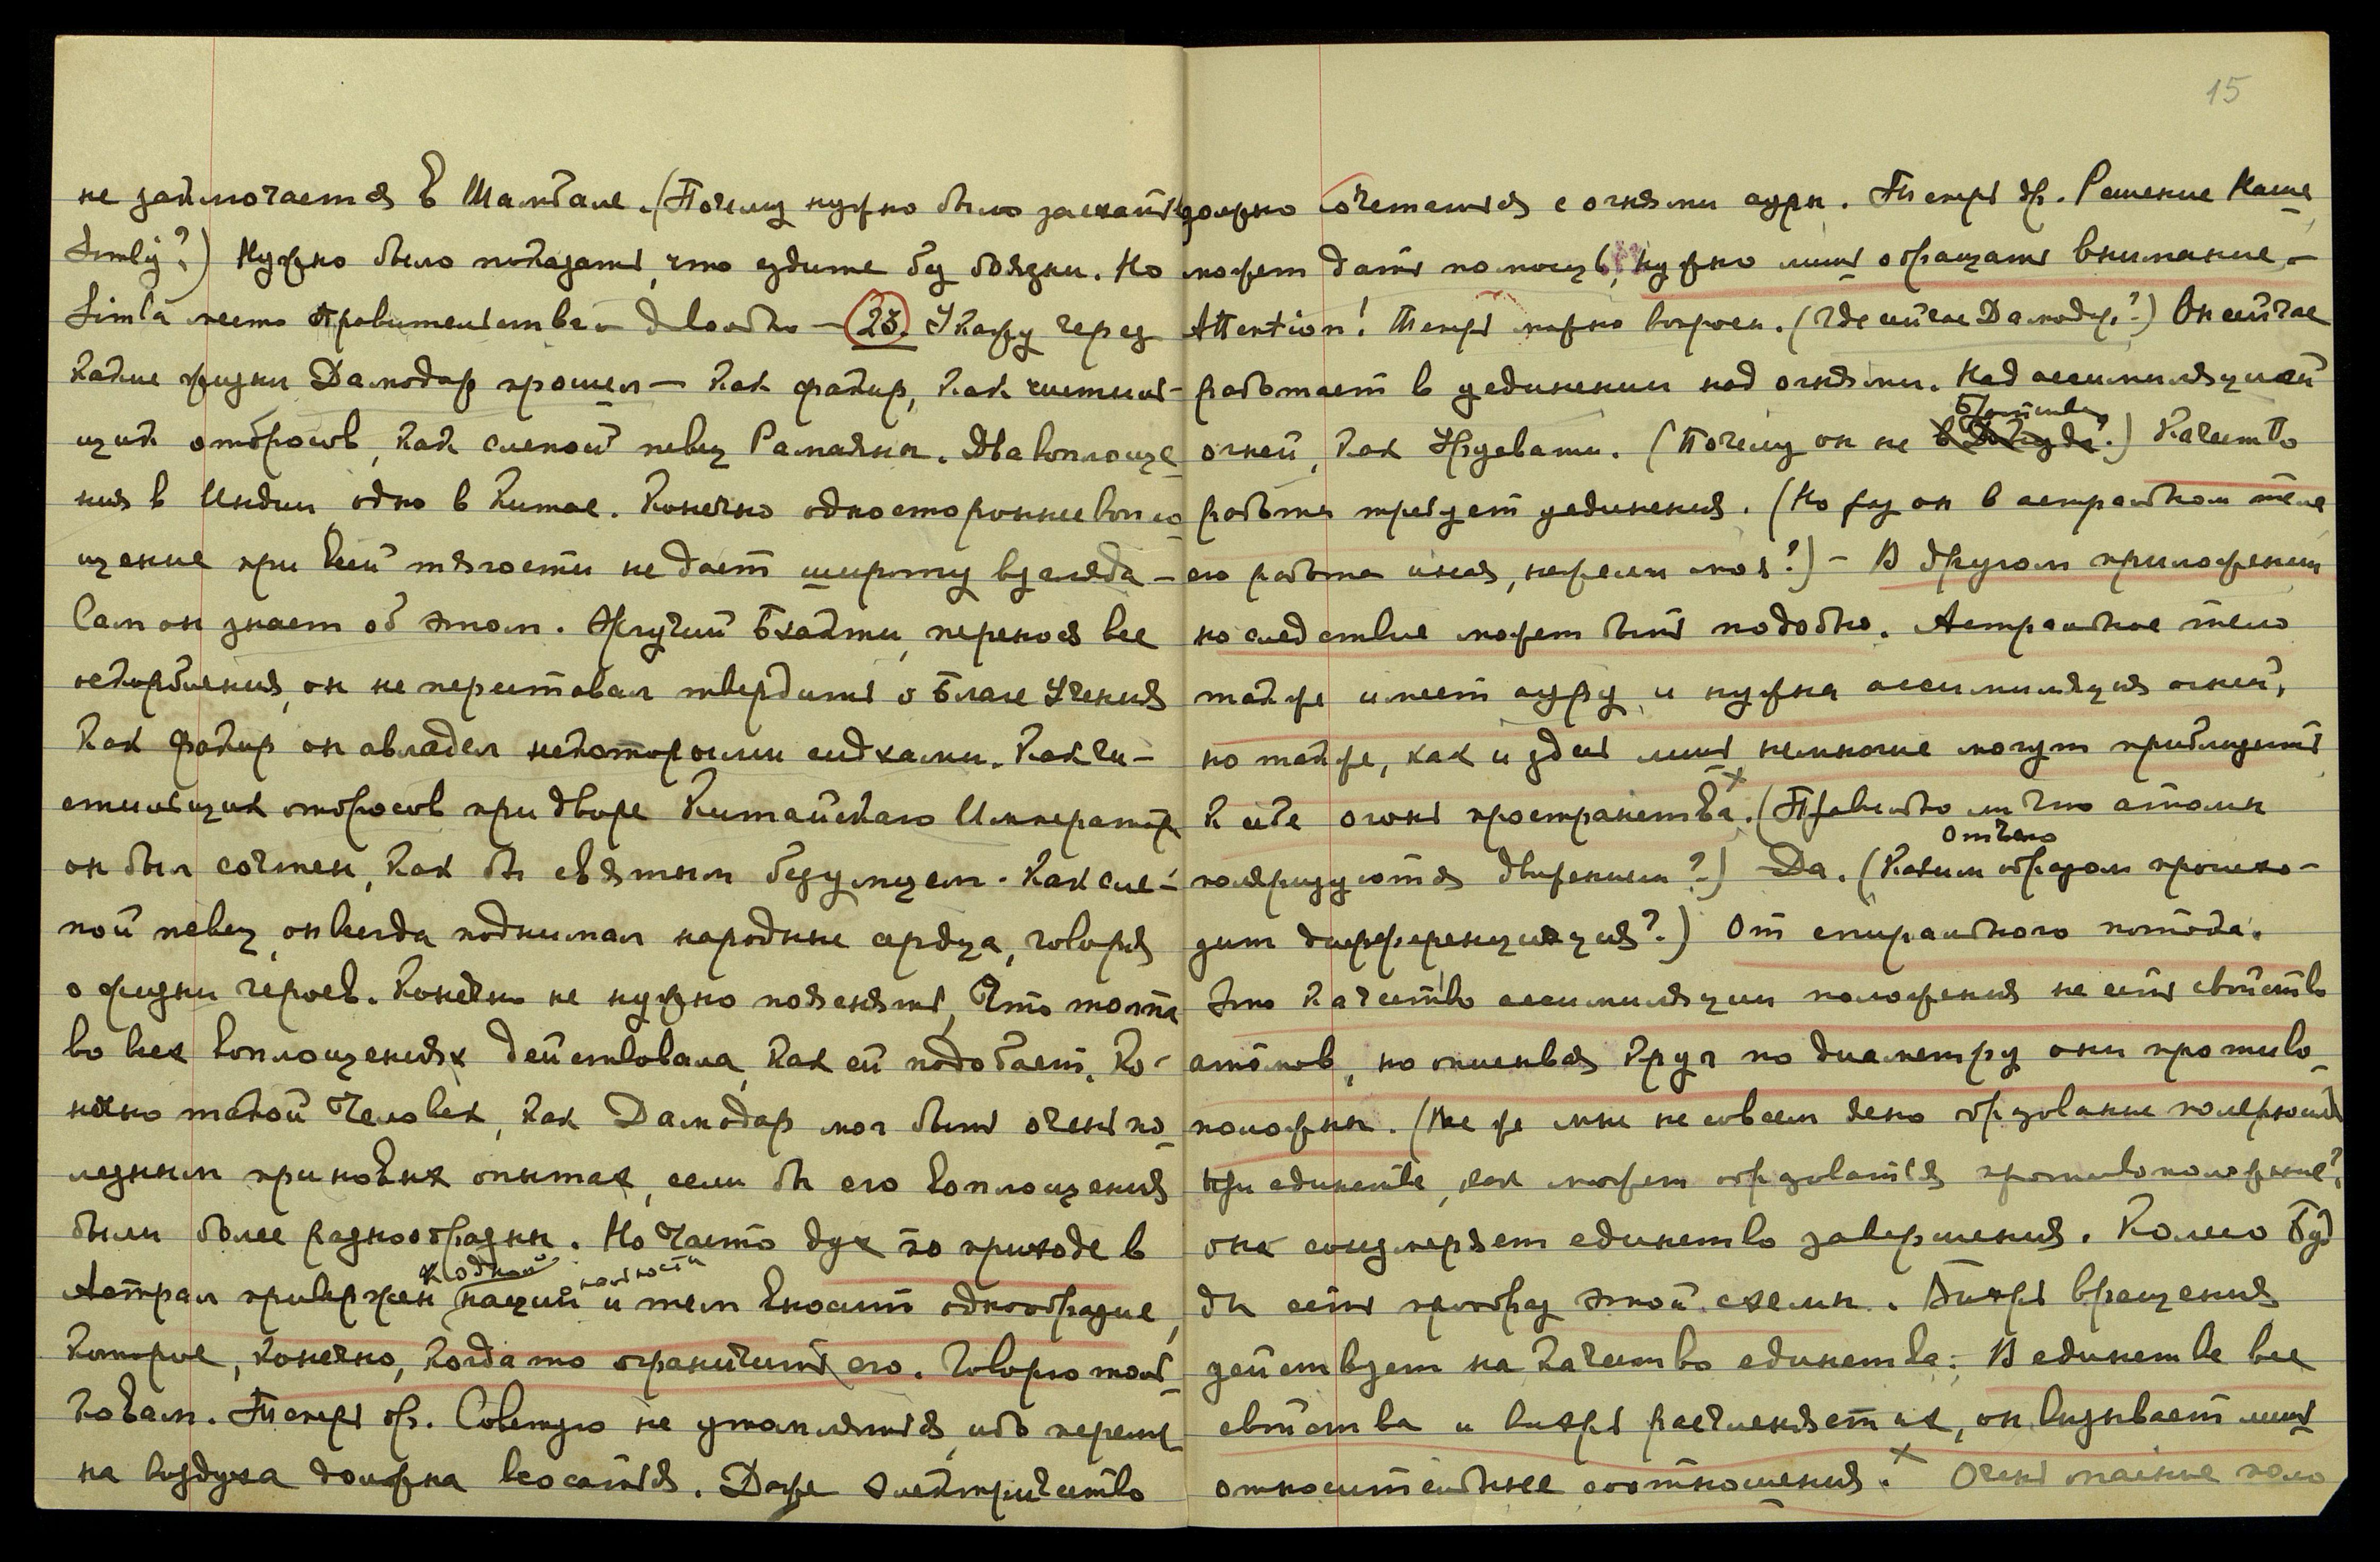 не заключается в Шамбале. (Почему нужно было заехать в
Simlу?) Нужно было показать, что ездите без боязни. Но
Simla место Правительства – довольно – 23. Укажу через
какие жизни Дамодар прошел – как факир, как чистиль-
щик отбросов, как слепой певец Рамаяны. Два воплоще-
ния в Индии одно в Китае. Конечно одностороннее вопло-
щение при всей тягости не дает широту взгляда –
Сам он знает об этом. Жгучий Бхакти, перенося все
оскорбления, он не переставал твердить о Благе Учения
Как факир он овладел некоторыми сидхами. Как чи-
стильщик отбросов при дворе Китайского Императора
он был сочтен, как бы святым безумцем. Как сле-
пой певец, он всегда поднимал народные сердца, говоря
о жизни героев. Конечно не нужно пояснять, что толпа
во всех воплощениях действовала, как ей подобает. Ко-
нечно такой человек, как Дамодар мог быть очень по-
лезным при новых опытах, если бы его воплощения
были более разнообразны. Но часто дух по приходе в
к одной нальности
Астрал привержен нации и тем вносит однообразие,
которое, конечно, когда то ограничить его. Говорю толь-
ко вам. Теперь др. Советую не утомляться, ибо переме-
на воздуха должна всосаться. Даже электричество
15
должно сочетаться с огнями ауры. Теперь др. Решение Наше
может дать помощь, нужно лишь обращать внимание –
Attention! Теперь можно вопросы. (Где сейчас Дамодар?) Он сейчас
работает в уединении над огнями. Над ассимиляцией
Братстве
огней, как Урусвати. (Почему он не в) Качество
работы требует уединения. (Но раз он в астральном теле
его работа иная, нежели моя?) – В другом приложении
но следствие может быть подобно. Астральное тело
также имеет ауру и нужна ассимиляция огней,
но также, как и здесь лишь немногие могут приблизить
к себе огонь пространства. (Правильно ли что атомы
Отчего
поляризуются движением?) – Да. (Каким образом происхо-
дит дифференциация?) От спирального потока.
Это качество ассимиляции положения не есть свойство
атомов, но описывая круг по диаметру они противо-
положны. (Все же мне не совсем ясно образование полярности
при единстве, как может образоваться противоположение?
она соизмеряет единство завершения. Колесо Буд-
ды есть прообраз этой схемы. Вихрь вращения
действует на качество единства: В единстве все
свойства и вихрь расчленяет их, он вызывает лишь
относительные соотношения. Очень опасные поло